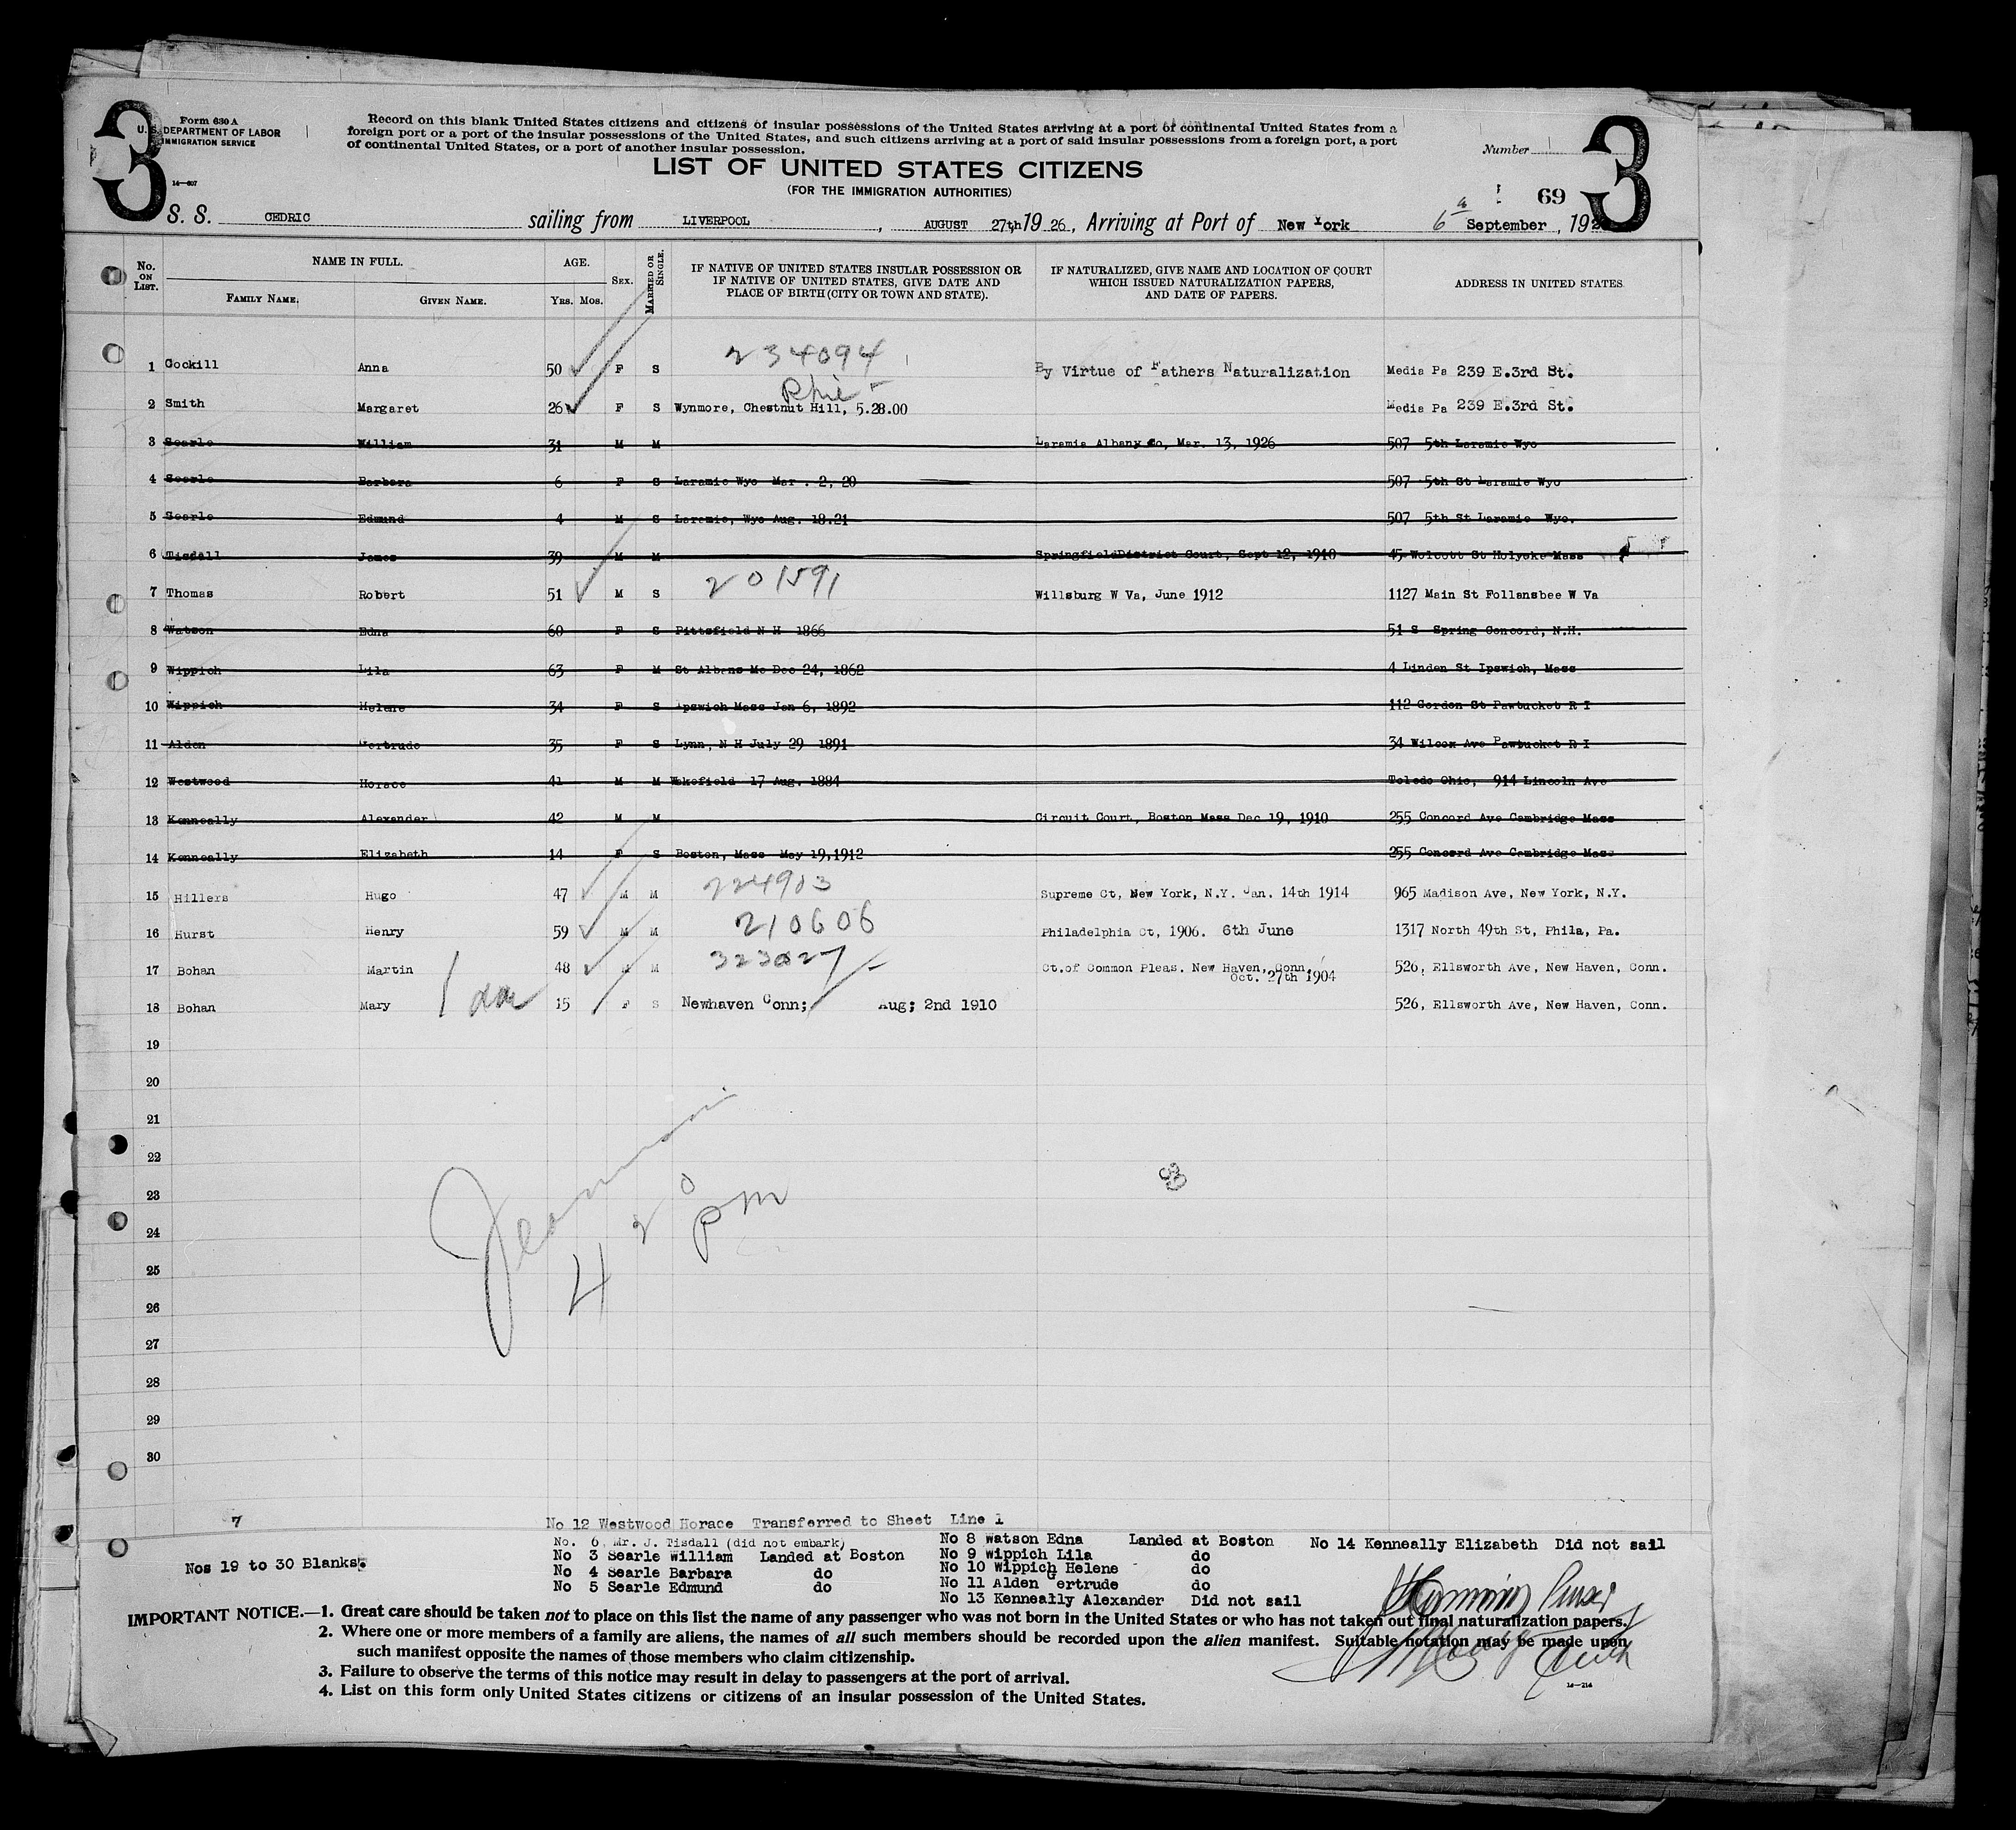 3
Form 630 A
U. S. DEPARTMENT OF LABOR
IMMIGRATION SERVICE
14—607
Record on this blank United States citizens and citizens of insular possessions of the United States arriving at a port of continental United States from a
foreign port or a port of the insular possessions of the United States, and such citizens arriving at a port of said insular possessions from a foreign port, a port
of continental United States, or a port of another insular possession.
LIST OF UNITED STATES CITIZENS
(FOR THE IMMIGRATION AUTHORITIES)
Number
3
69
S. S. CEDRIC sailing from LIVERPOOL , AUGUST 27th 19 26, Arriving at Port of New York 6 September , 192
No. ON LIST.
NAME IN FULL.
FAMILY NAME.
GIVEN NAME.
AGE.
YRS. MOS.
SEX.
MARRIED OR SINGLE.
IF NATIVE OF UNITED STATES INSULAR POSSESSION OR
IF NATIVE OF UNITED STATES, GIVE DATE AND
PLACE OF BIRTH (CITY OR TOWN AND STATE).
IF NATURALIZED, GIVE NAME AND LOCATION OF COURT
WHICH ISSUED NATURALIZATION PAPERS,
AND DATE OF PAPERS.
ADDRESS IN UNITED STATES
1 Cockill Anna 50 F S 234094 By Virtue of Fathers Naturalization Media Pa 239 E.3rd St.
Phil
2 Smith Margaret 26 F S Wynmore, Chestnut Hill, 5.28.00 Media Pa 239 E.3rd St.
3 Searle William 31 M M Laramie Albany Co, Mar. 13, 1926 507 5th Laramie Wyo
4 Searle Barbara 6 F S Laramie Wyo Mar . 2, 20 507 5th St Laramie Wyo
5 Searle Edmund 4 M S Laramie, Wyo Aug. 18.21 507 5th St Laramie Wyo.
6 Tisdall James 39 M M Springfield District Court, Sept 12, 1910 45 Wolcott St Holyoke Mass
7 Thomas Robert 51 M S 201591 Willsburg W Va, June 1912 1127 Main St Follansbee W Va
8 Watson Edna 60 F S Pittsfield N H 1866 51 S Spring Concord, N.H.
9 Wippich Lila 63 F M St Albans Me Dec 24, 1862 4 Linden St Ipswich, Mass
10 Wippich Helene 34 F S Ipswich Mass Jan 6, 1892 112 Gordon St Pawtucket R I
11 Alden Gertrude 35 F S Lynn, N H July 29 1891 34 Wilcox Ave Pawtucket R I
12 Westwood Horace 41 M M Wakefield 17 Aug. 1884 Toledo Ohio, 914 Lincoln Ave
13 Kenneally Alexander 42 M M Circuit Court, Boston Mass Dec 19, 1910 255 Concord Ave Cambridge Mass
14 Kenneally Elizabeth 14 F S Boston, Mass May 19,1912 255 Concord Ave Cambridge Mass
15 Hillers Hugo 47 M M 224903 Supreme Ct, New York, N.Y. Jan. 14th 1914 965 Madison Ave, New York, N.Y.
16 Hurst Henry 59 M M 210606 Philadelphia Ct, 1906. 6th June 1317 North 49th St, Phila, Pa.
17 Bohan Martin 48 M M 323027 Ct.of Common Pleas. New Haven, Conn. 526, Ellsworth Ave, New Haven, Conn.
Oct. 27th 1904
18 Bohan Mary 15 F S Newhaven Conn; Aug; 2nd 1910 526, Ellsworth Ave, New Haven, Conn.
19
20
21
22
23
24
25
26
27
28
29
30
4 20 pm
7
No 12 Westwood Horace Transferred to Sheet Line 1
No. 6, Mr. J. Tisdall (did not embark)
No 3 Searle William Landed at Boston
No 4 Searle Barbara do
No 5 Searle Edmund do
No 8 Watson Edna Landed at Boston
No 9 Wippich Lila do
No 10 Wippich Helene do
No 11 Alden Gertrude do
No 13 Kenneally Alexander Did not sail
No 14 Kenneally Elizabeth Did not sail
Nos 19 to 30 Blanks.
Purser
IMPORTANT NOTICE.—1. Great care should be taken not to place on this list the name of any passenger who was not born in the United States or who has not taken out final naturalization papers.
2. Where one or more members of a family are aliens, the names of all such members should be recorded upon the alien manifest. Suitable notation may be made upon
such manifest opposite the names of those members who claim citizenship.
3. Failure to observe the terms of this notice may result in delay to passengers at the port of arrival.
4. List on this form only United States citizens or citizens of an insular possession of the United States.
14—214